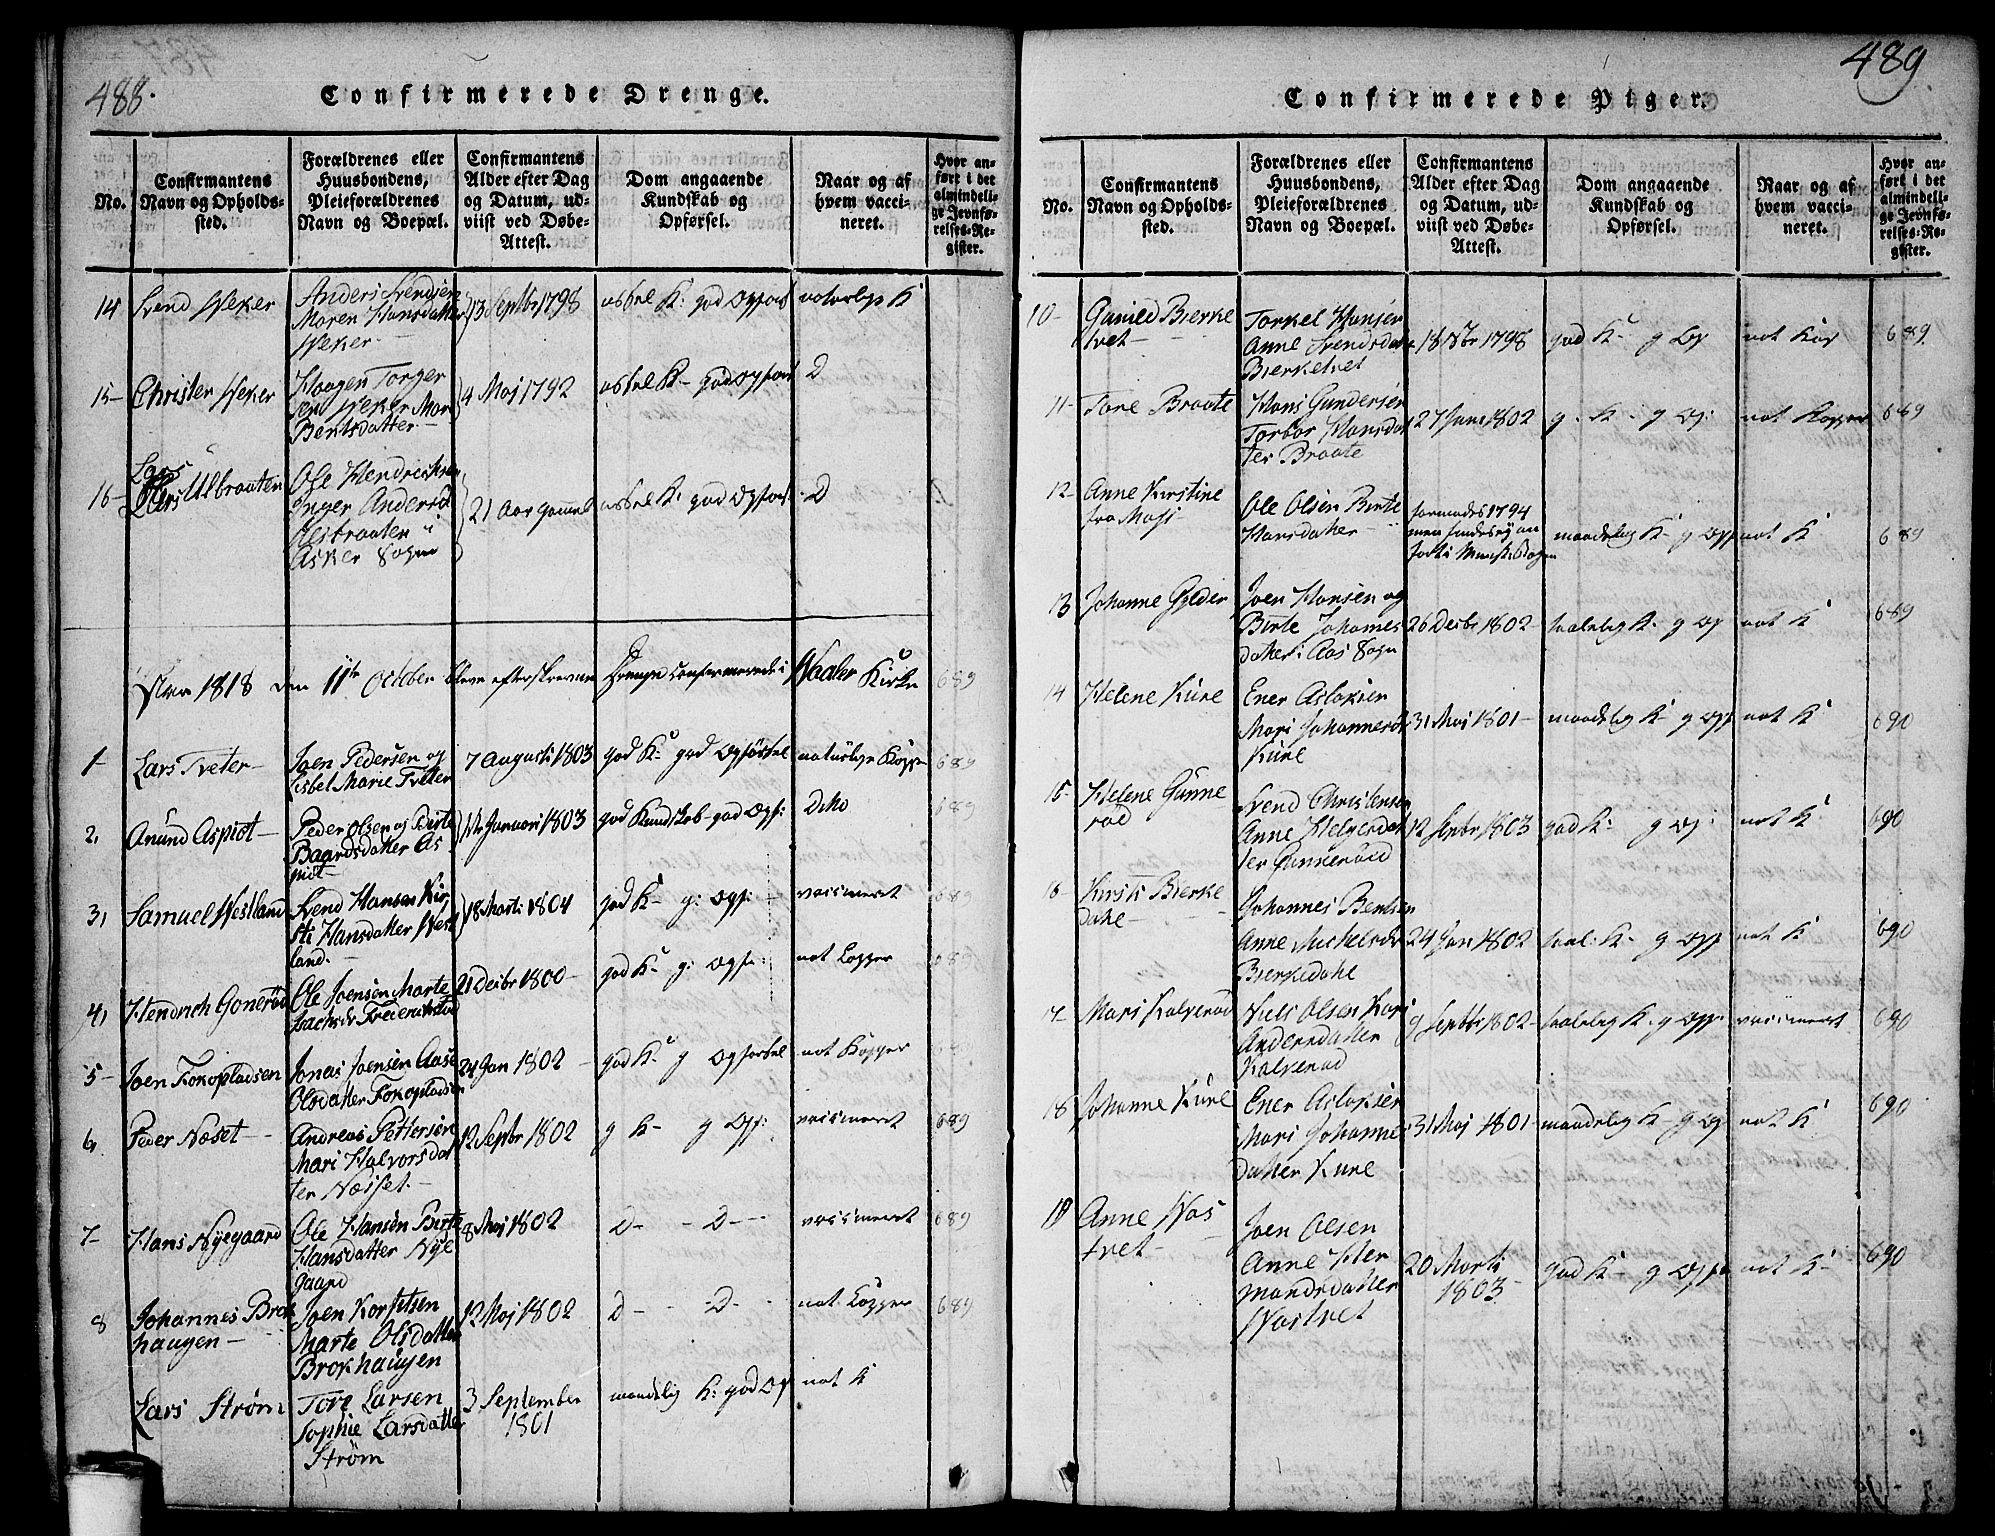 488.
Confirmerede Drenge.
No.
Confirmantens
Navn og Opholds-
sted.
Forældrenes eller
Huusbondens,
Pleieforældrenes
Navn og Boepæl.
Confirmantens
Alder efter Dag
og Datum, ud-
viist ved Døbe-
Attest.
Dom angaaende
Kundskab og
Opførsel.
Naar og af
hvem vacci-
neret.
Hvor an-
ført i det
almindeli-
ge Jevnfø-
relses-Re-
gister.
14 Svend Weker
Anders Svendsen
Maren Hansdatter
Weker
13 Septbr 1798
K: god Opførs
naturlige K
15- Christen Weker
Haagen Torger
sen Weker Mari
Bentsdatter
4 Maj 1792
K- god Opførs
D
16- Lars Ulbraaten
Ole Hendrichsen
Inger Andersd
i
Asker Sogn
21 Aar gammel
K: god Opførs
D
1818 den 11te October bleve efterskrevne Drenge confirmerede i Waaler Kirke 689
1- Lars Tveter
Joen Pedersen og
Lisbel Marie Tvetter
7 Augusti 1803
god K: god Opførsel
naturlige Kopper
689
2, Anund Aspiot
Peder Olsen og Birte
Baardsdatter As
piot
14 Januari 1803
god Kundskab god Opf:
Dito
689
3, Samuel Westland
Svend Hansen Kir
sti Hansdatter West
land.
18 Marti 1804
god K- g: Opf:
vaccineret
689
4, Hendrich Gonerød
Ole Joensen Marte
Isachsdr Frederikstad
21 Decbr 1800
god K- g: Opf:
nat Kopper
689
5- Joen Fokopladsen
Jonas Joensen Aase
Olsdatter Fokopladsen
24 Jan 1802
god K: g Opførsel
nat Kopper
6, Peder Næset
Andreas Pettersen
Mari Halvorsdat
ter Næset.
12 Septbr 1802
g K- g Opf:
vaccineret
689
7- Hans Nyegaard
Ole Hansen Birte
Hansdatter Nye
gaard
8 Maj 1802
D- - D-
vaccineret
689
8 Johannes Brok
haugen
Joen Korstsen
Marte Olsdatter
Brokhaugen
12 Maj 1802
D- D-
nat. Kopper
689
Lars Strøm
Tore Larsen
Sophie Larsdatter
Strøm
3 September
1801
maadelig K: god Op
nat K
489
Confirmerede Piger.
No.
Confirmantens
Navn og Opholds-
sted.
Forældrenes eller
Huusbondens,
Pleieforældrenes
Navn og Boepæl.
Confirmantens
Alder efter Dag
og Datum, ud-
viist ved Døbe-
Attest.
Dom angaaende
Kundskab og
Opførsel.
Naar og af
hvem vacci-
neret.
Hvor an-
ført i det
almindeli-
ge Jevnfø-
relses-Re-
gister.
10- Gunild Bierke
tvet
Torkel Hansen
Anne Svendsdat
Bierketvet
18 Nbr 1798
god K- g Op
nat Kop
689
11- Tore Braate
Hans Gundersen
Torbor Hansdat
ter Braate
27 Juni 1802
g. K- g Op:
nat Kopper
689
12- Anne Kirstine
fra Moss
Ole Olsen Birte
Hansdatter
formodes 1794
men findes ej an
ført i
maadelig K- g Opf
nat K
689
13 Johanne Gylder
Joen Hansen og
Birte Johannes
datter i Aas Sogn
26 Decbr 1802
taalelig K- g Op
nat K
689
14 Helene Kure
Ener Aslaksen
Mari Johannesd
Kure
31 Maj 1801
maadelig K- g Opf
nat K
690
15- Helene Gunne
rød
Svend Christensen
Anne Helgesdat
ter Gunnerød
12 Septbr 1803
god K: g Op:
nat K
690
16- Kirsti Bierke
dahl
Johannes Bentsen
Anne Michelsdr
Bierkedahl
24 Jan 1802
taal: K- g Opf
nat K
690
17- Mari Kalverød
Niels Olsen Kari
Andersdatter
Kalverød
9 Septbr 1802
taalelig K- g Opf
vaccineret
690
18 Johanne Kure
Ener Aslaksen
Mari Johannes
datter Kure
31 Maj 1801
maadelig K- g Op
nat K
690
19 Anne Was
tvet
Joen Olsen
Anne Her
mandsdatter
Wastvet
20 Marti
1803
god K- g Opf
nat K-
690